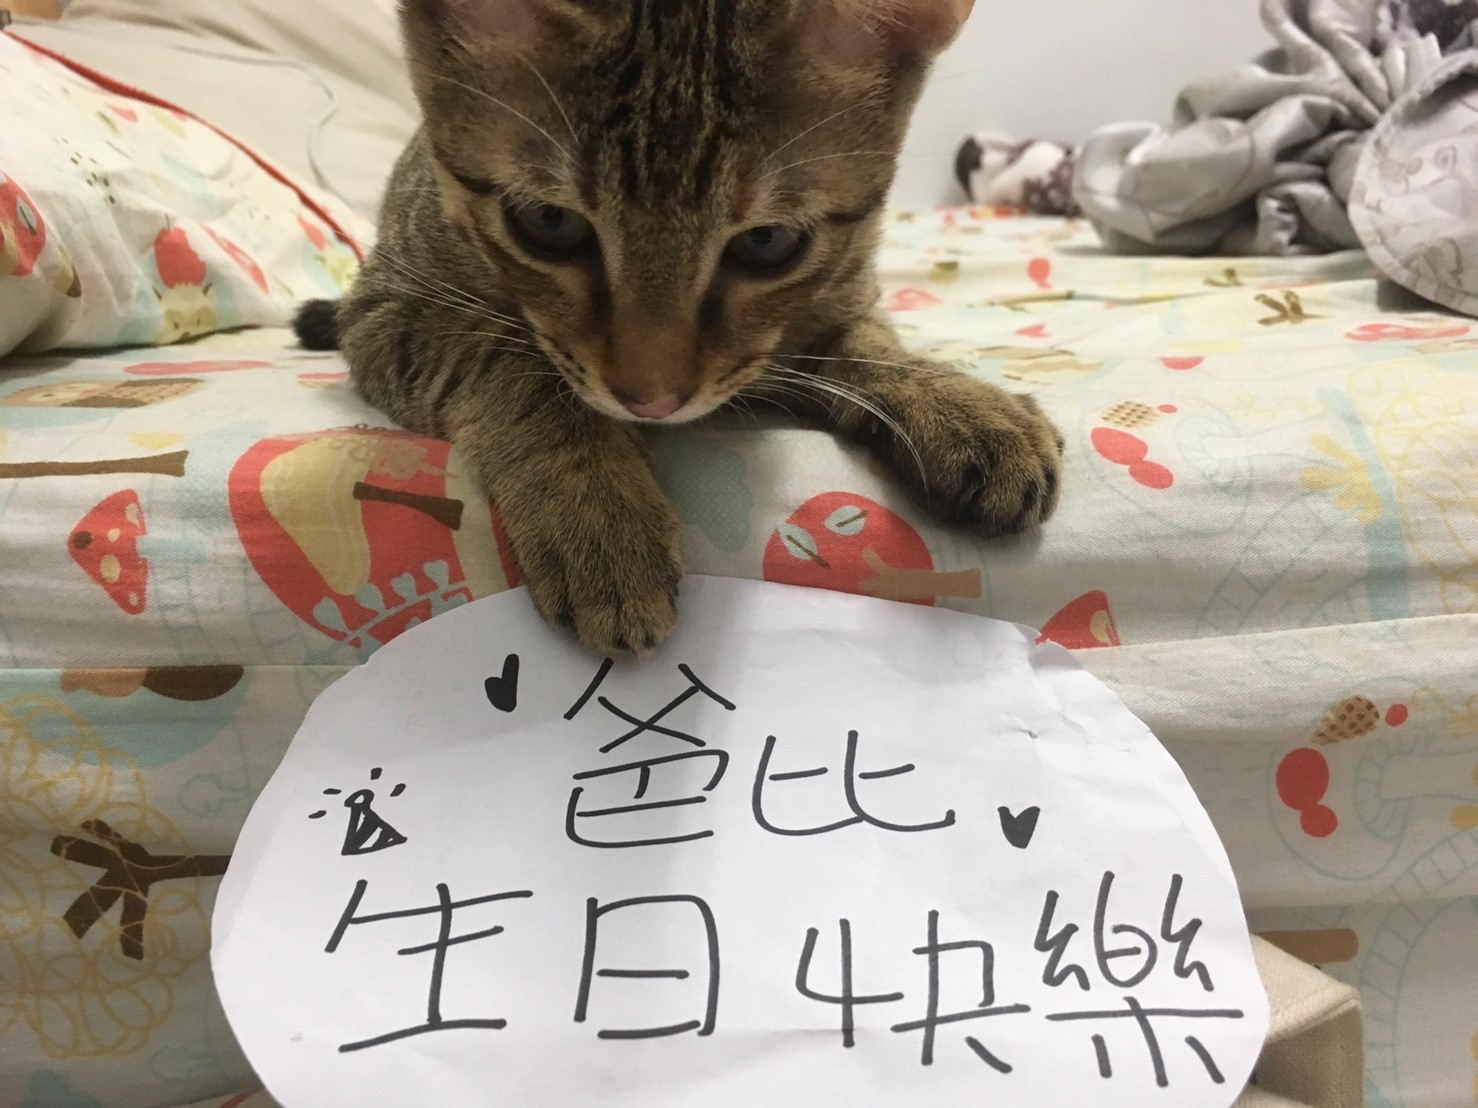 爸比
生日快樂